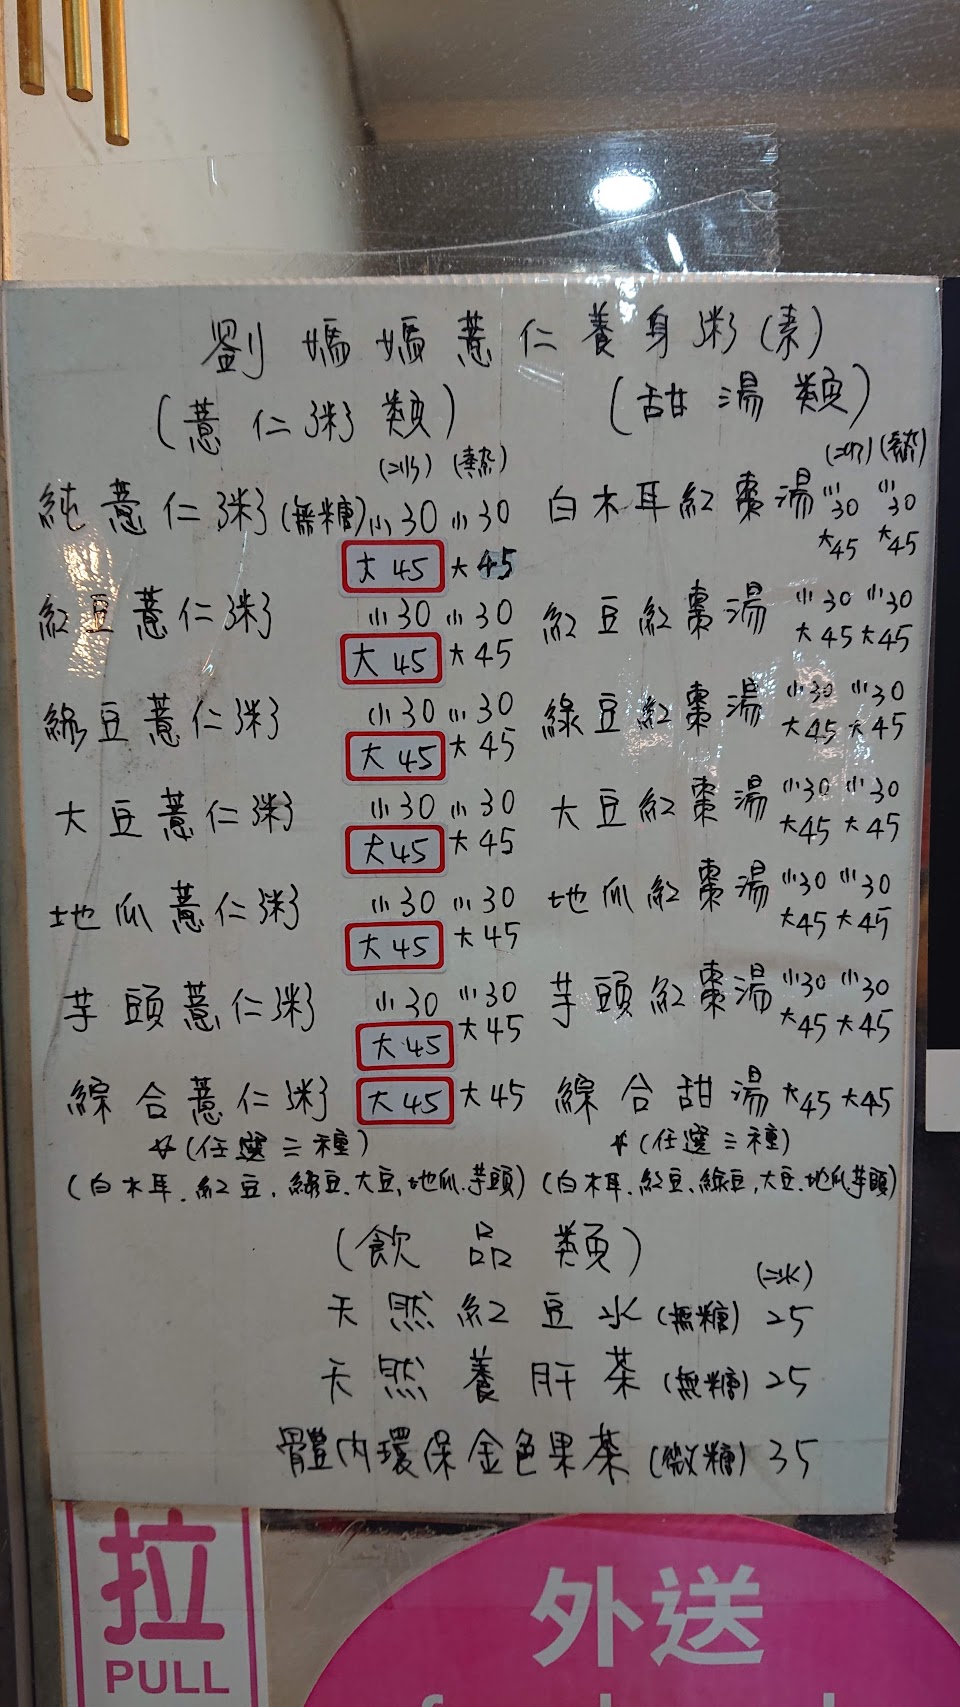 劉媽媽薏仁養身粥(素)
(薏仁粥類)
(冰)(熱)
純薏仁粥(無糖)小30 小30
大45 大45
紅豆薏仁粥 小30 小30
大45 大45
綠豆薏仁粥 小30 小30
大45 大45
大豆薏仁粥 小30 小30
大45 大45
地瓜薏仁粥 小30 小30
大45 大45
芋頭薏仁粥 小30 小30
大45 大45
綜合薏仁粥 大45 大45
☆(任選三種)
(白木耳.紅豆.綠豆.大豆.地瓜.芋頭)
(甜湯類)
(冰)(熱)
白木耳紅棗湯 小30 小30
大45 大45
紅豆紅棗湯 小30 小30
大45 大45
綠豆紅棗湯 小30 小30
大45 大45
大豆紅棗湯 小30 小30
大45 大45
地瓜紅棗湯 小30 小30
大45 大45
芋頭紅棗湯 小30 小30
大45 大45
綜合甜湯 大45 大45
☆(任選三種)
(白木耳.紅豆.綠豆.大豆.地瓜芋頭)
(飲品類)
(冰)
天然紅豆水(無糖) 25
天然養肝茶(無糖) 25
體內環保金色果茶(微糖) 35
拉
PULL
外送